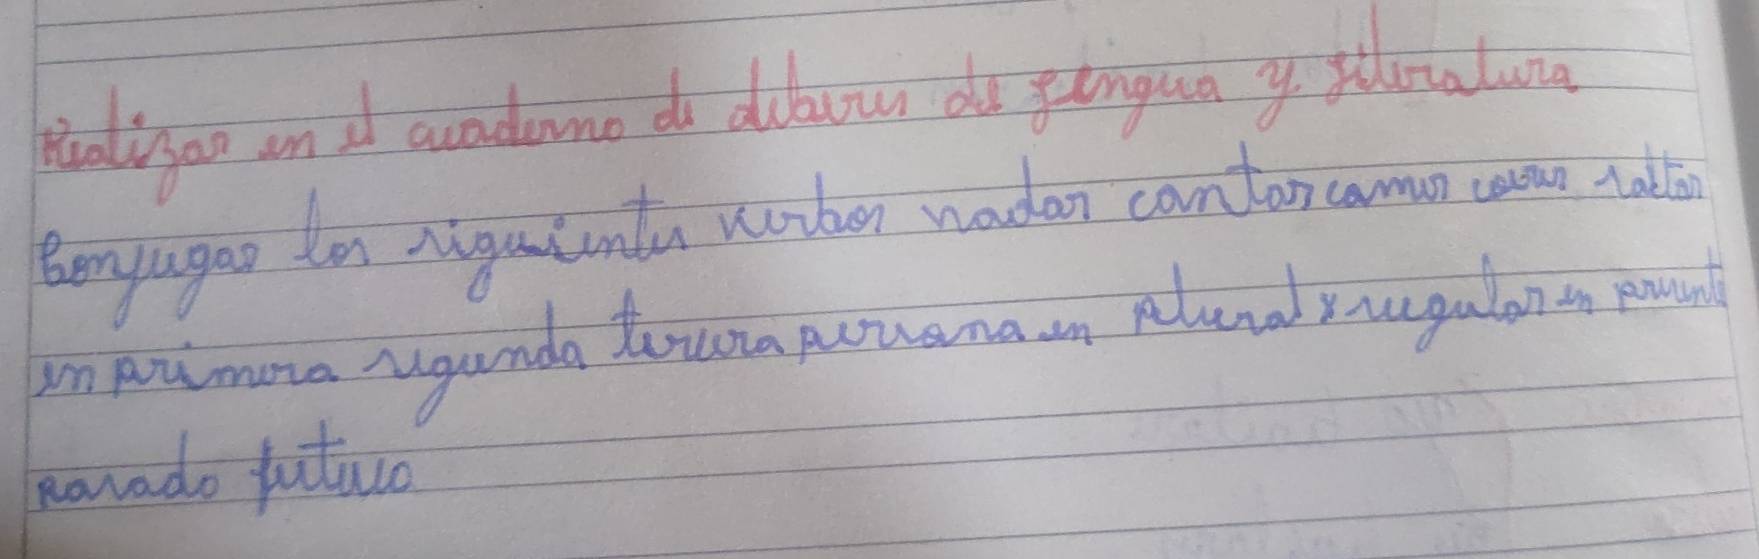 Realizar en el cuaderno de deberes de Lengua y Literatura
Conjugar los siguientes verbos nadar cantar comer correr saltar
en primera segunda tercera persona en plural y singular en presente
pasado futuro